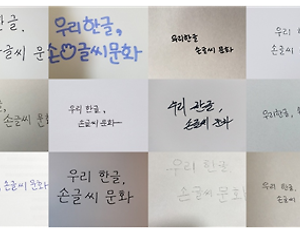 우리 한글,
손글씨 문
우리한글,
손글씨문화
우리한글
손글씨 문화
우리 한
손글씨
우리 한글
손글씨 문
우리 한글,
손글씨 문화
우리 한글,
손글씨 문화
우리한글,
손글씨 문
손글씨 문화
우리 한글,
손글씨 문화
우리 한글,
손글씨 문화
우리 한글,
손글씨